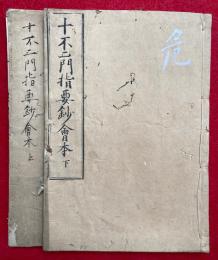 十不二門指要鈔會本下
十不二門指要鈔會本上